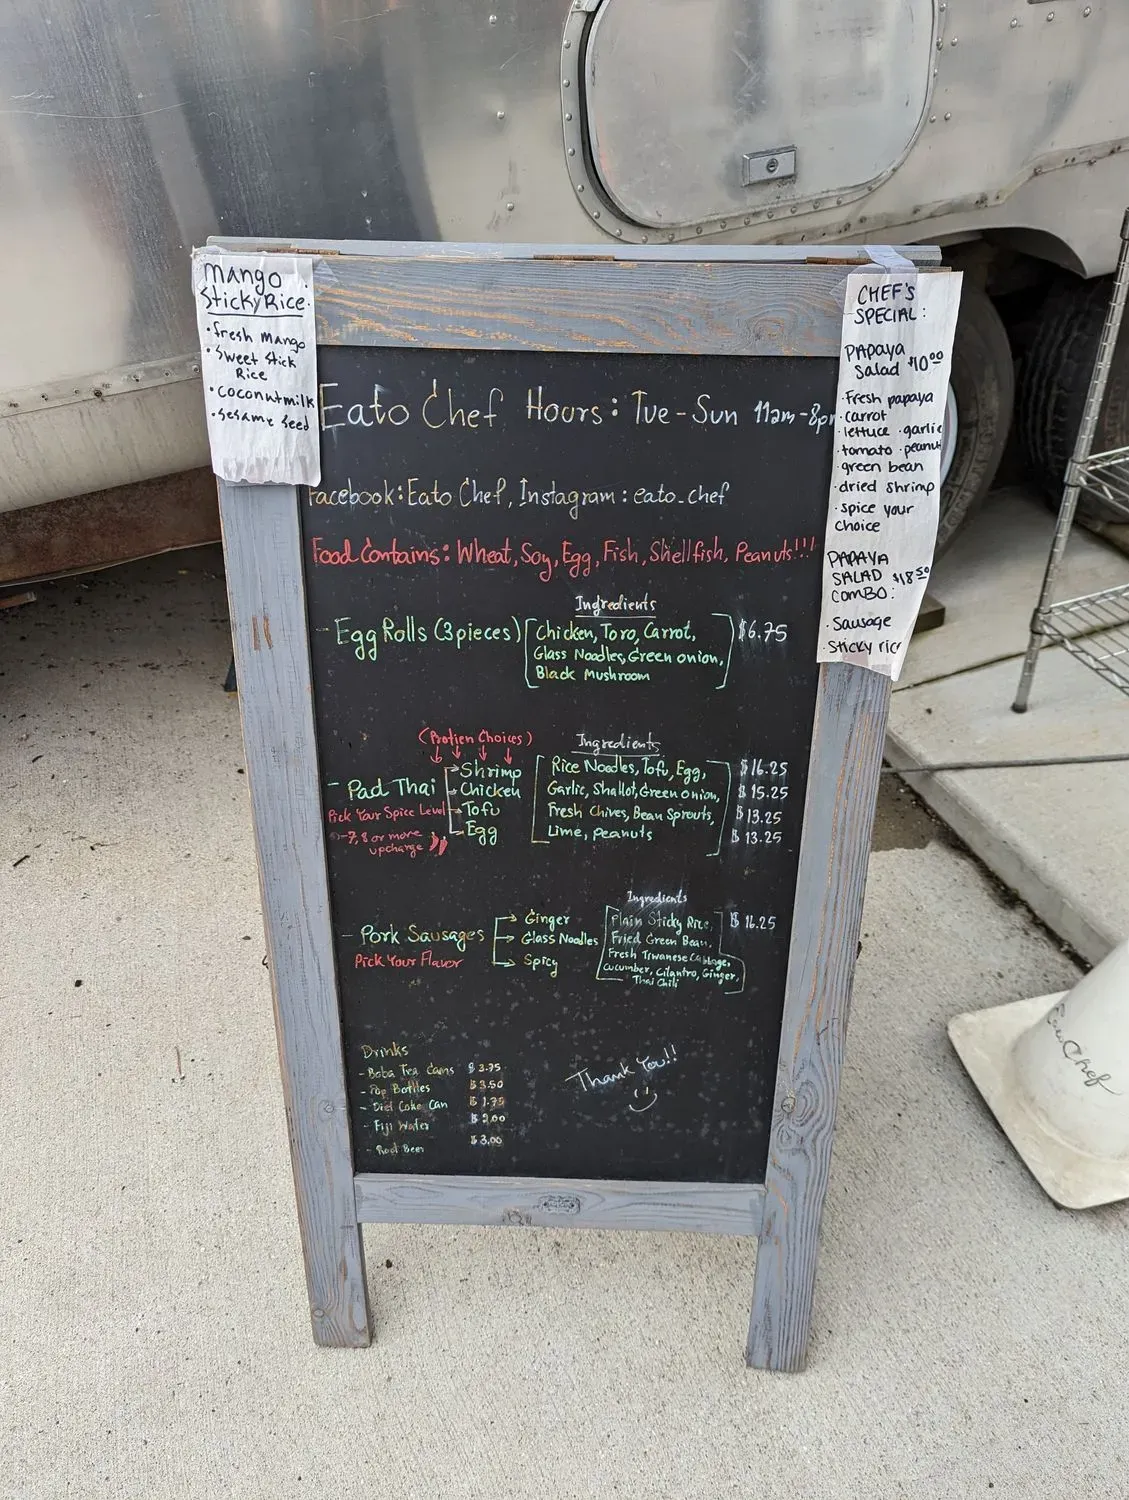 Mango
Sticky Rice
• fresh mango
• sweet stick
Rice
• coconutmilk
• sesame seed
CHEF'S
SPECIAL:
PAPAYA
Salad $10.00
• Fresh papaya
• carrot
• lettuce • garlic
• tomato • peanut
• green bean
• dried shrimp
• spice your
choice
PAPAYA
SALAD $18.50
COMBO:
• Sausage
• Sticky rice
Eato Chef Hours: Tue-Sun 11am-8pm
Facebook: Eato Chef, Instagram: eato_chef
Food Contains: Wheat, Soy, Egg, Fish, Shellfish, Peanuts!!!
Ingredients
- Egg Rolls (3 pieces) [Chicken, Toro, Carrot, $6.75
Glass Noodles, Green onion,
Black Mushroom]
(Protien Choices)
Ingredients
- Pad Thai
Shrimp
Chicken
Tofu
Egg
Pick Your Spice Level
-7, 8 or more
upcharge
Rice Noodles, Tofu, Egg,
Garlic, Shallot, Green onion,
Fresh Chives, Bean Sprouts,
Lime, peanuts
$16.25
$15.25
$13.25
$13.25
Ingredients
- Pork Sausages
Pick Your Flavor
Ginger
Glass Noodles
Spicy
Plain Sticky Rice,
Fried Green Bean,
Fresh Tiwanese Cabbage,
Cucumber, Cilantro, Ginger,
Thai Chili
$16.25
Drinks
- Boba Tea Cans $3.75
- Pop Bottles $3.50
- Diet Coke Can $1.75
- Fiji Water $2.00
- Root Beer $3.00
Thank You!!
Eato Chef